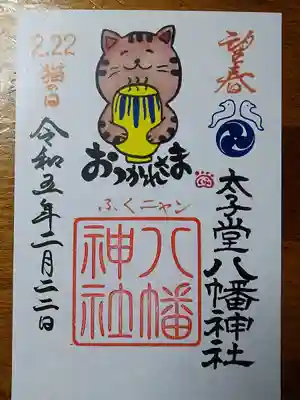 望春
太子堂八幡神社
2.22
猫の日
おつかれさま
ふくニャン
八幡
神社
令和五年二月二二日